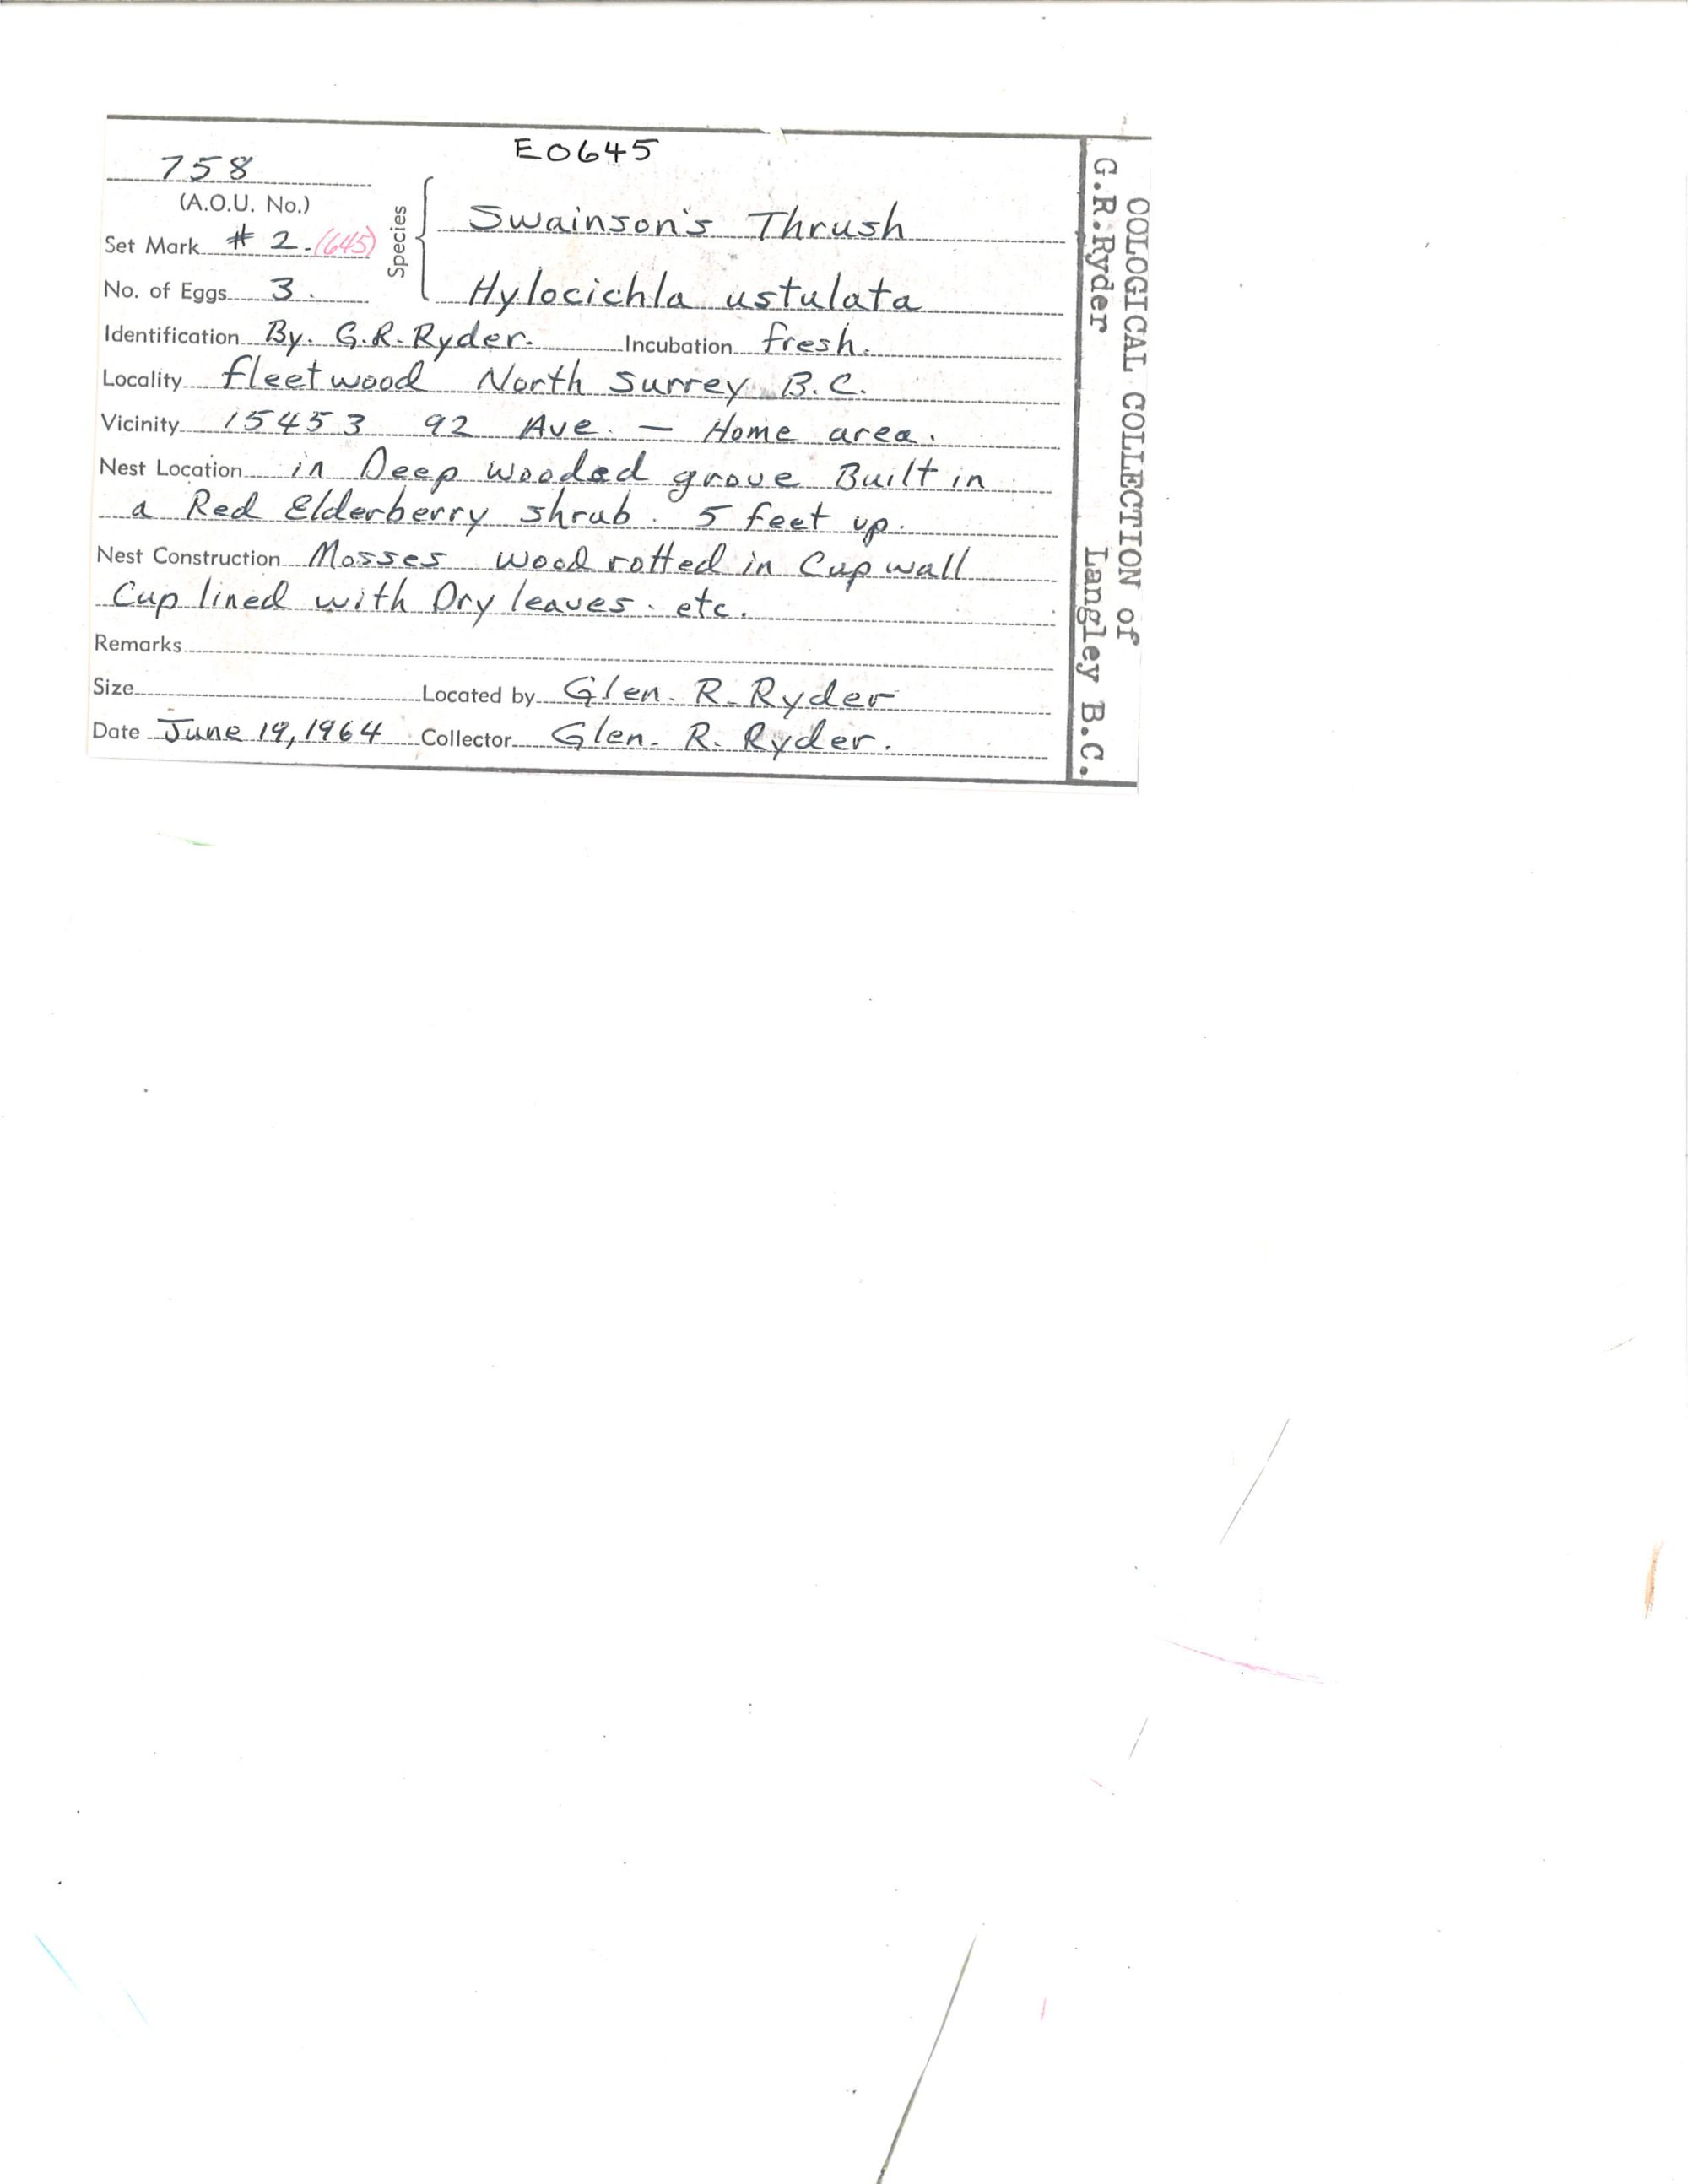 E0645
758
(A.O.U. No.)
Species
Swainson's Thrush
Set Mark # 2. (645)
Hylocichla ustulata
No. of Eggs 3.
Identification By. G.R. Ryder. Incubation fresh.
Locality fleetwood North Surrey B.C.
Vicinity 15453 92 Ave. — Home area.
Nest Location in Deep wooded grove Built in
a Red Elderberry shrub. 5 feet up.
Nest Construction Mosses wood rotted in Cup wall
Cup lined with Dry leaves. etc.
Remarks
Size Located by Glen. R. Ryder
Date June 19, 1964 Collector Glen. R. Ryder.
OOLOGICAL COLLECTION of
G.R.Ryder Langley B.C.